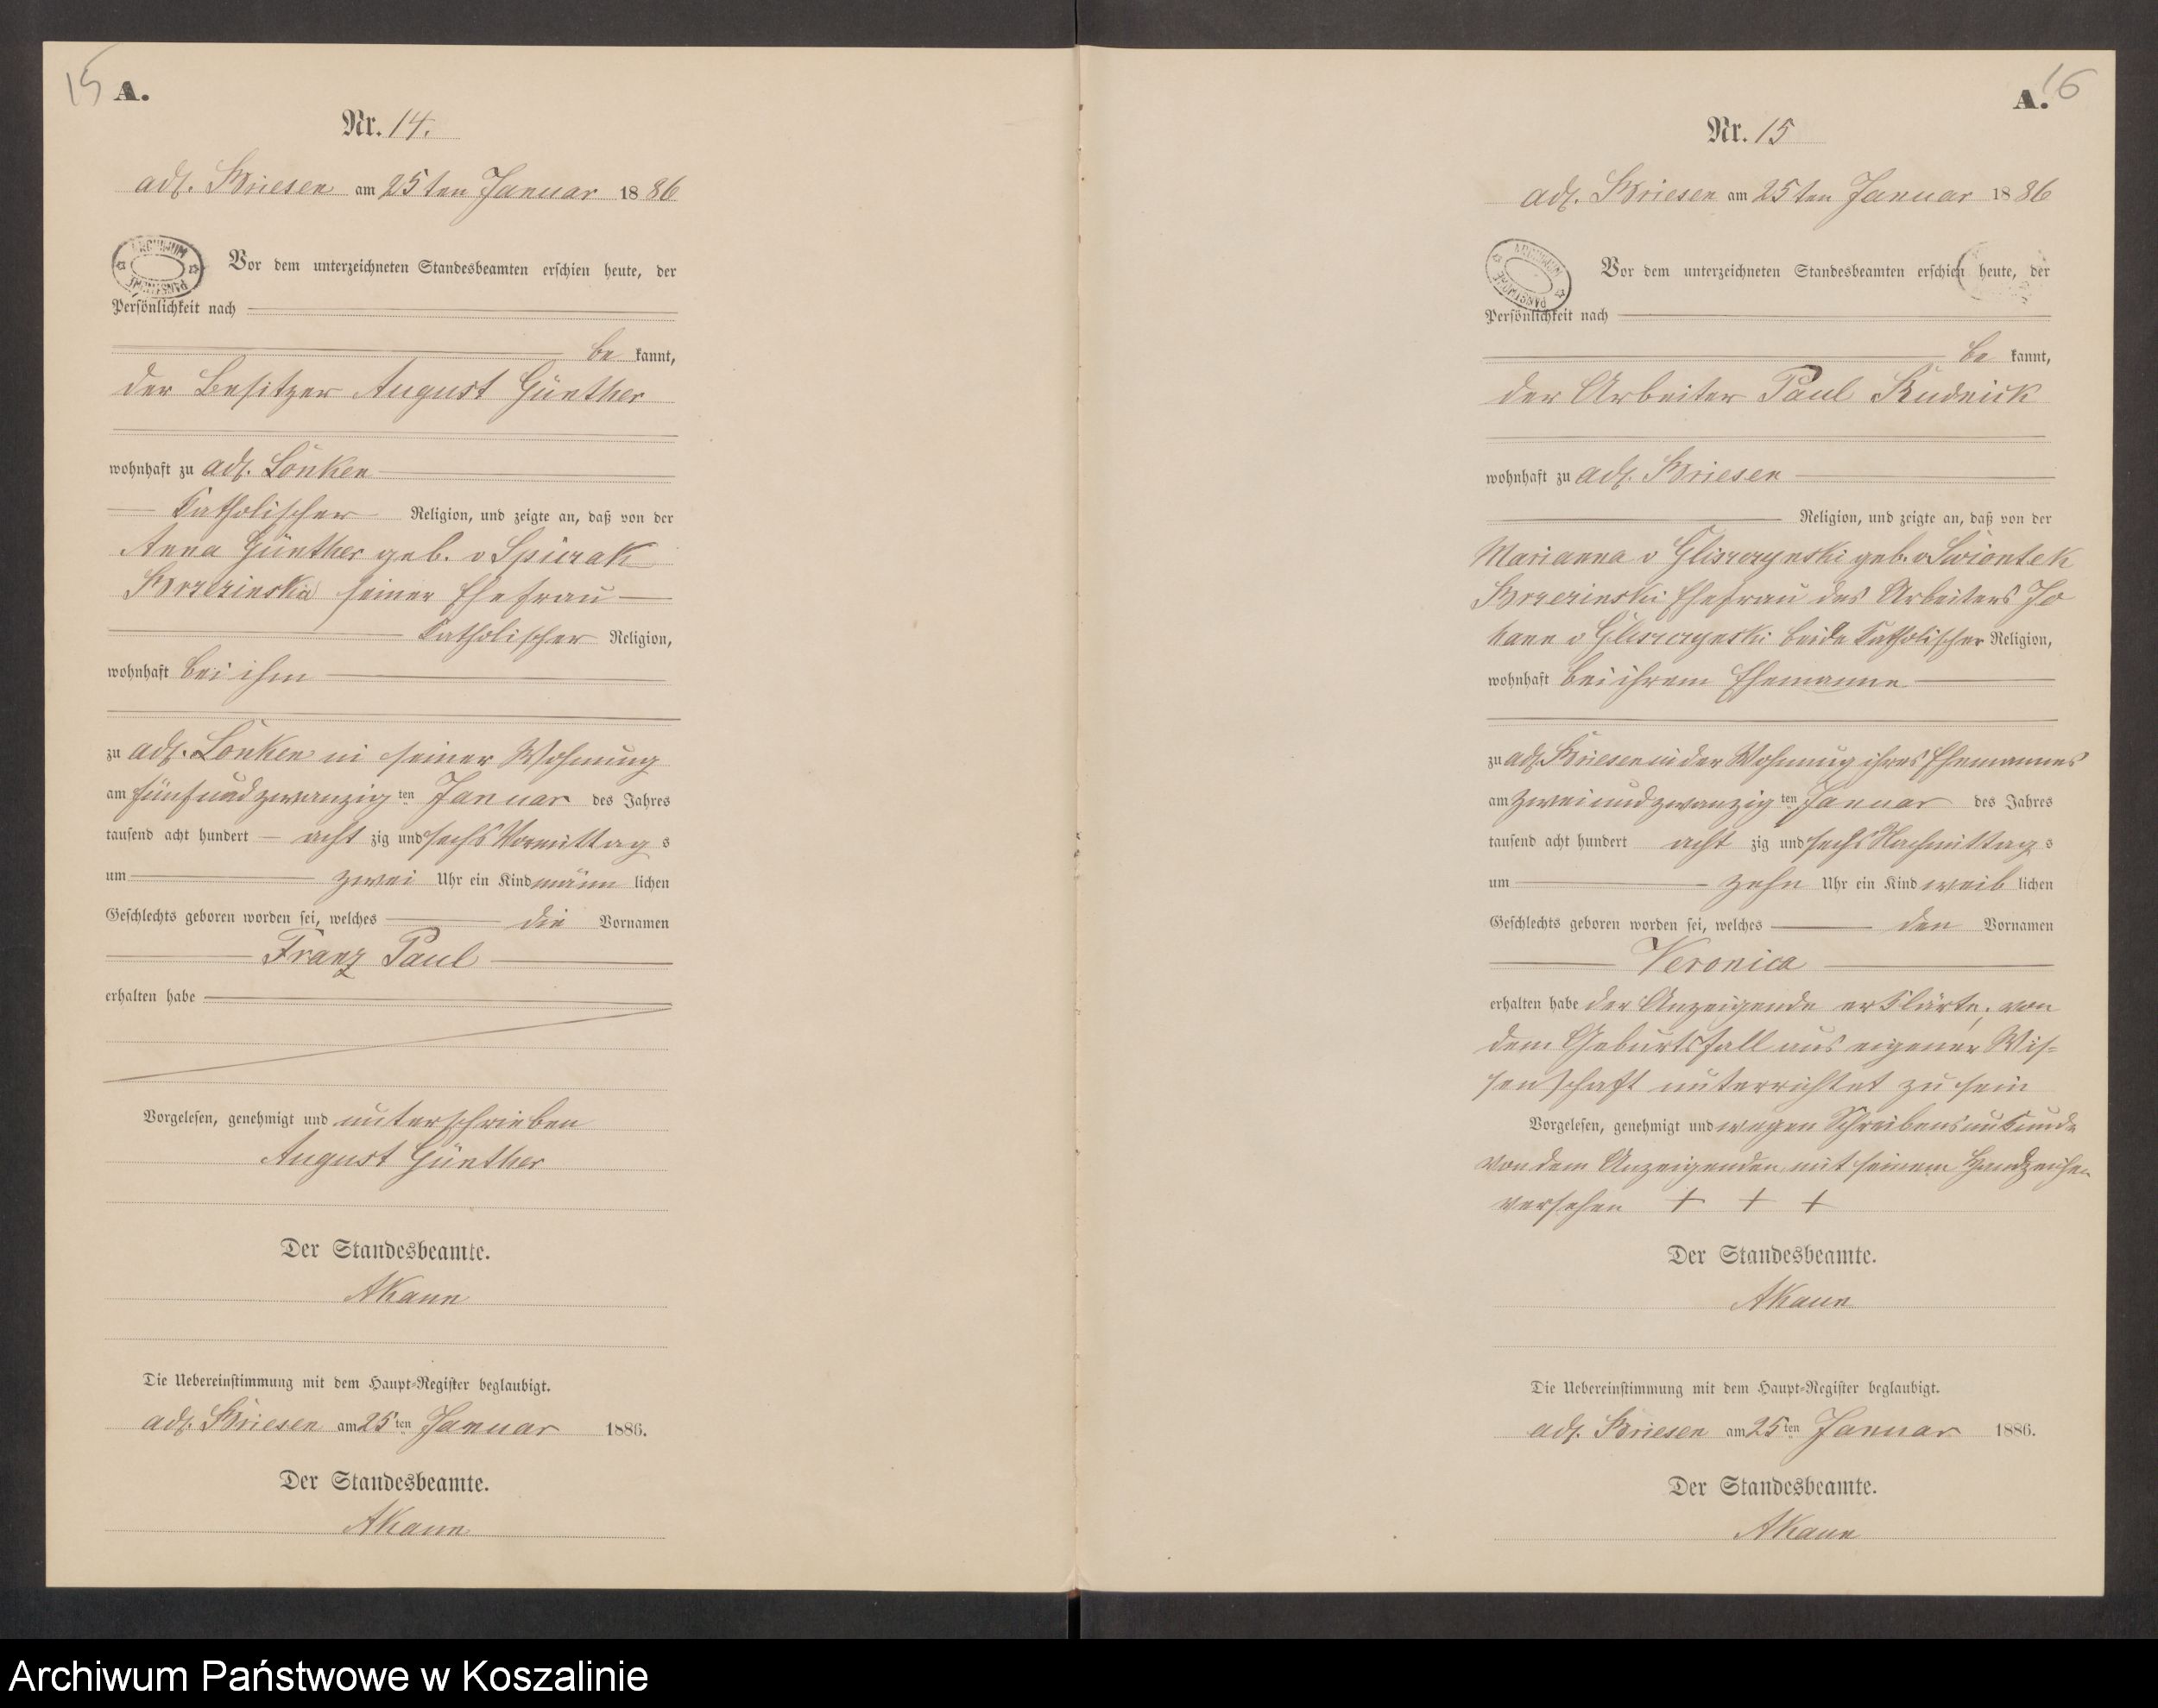 15 A.
Nr. 14.
adl. Briesen am 25ten Januar 1886
ARCHIWUM PAŃSTWOWE
Vor dem unterzeichneten Standesbeamten erschien heute, der
Persönlichkeit nach
be kannt,
der Besitzer August Günther
wohnhaft zu adl. Lonken
Katholischer Religion, und zeigte an, daß von der
Anna Günther geb. v
Brzezinska seiner Ehefrau
Katholischer Religion,
wohnhaft bei ihm
zu adl. Lonken in seiner Wohnung
am fünfundzwanzig ten Januar des Jahres
tausend acht hundert acht zig und sechs Vormittag s
um zwei Uhr ein Kind männ lichen
Geschlechts geboren worden sei, welches die Vornamen
Franz Paul
erhalten habe
Vorgelesen, genehmigt und unterschrieben
August Günther
Der Standesbeamte.
Die Uebereinstimmung mit dem Haupt-Register beglaubigt.
adl. Briesen am 25ten Januar 1886.
Der Standesbeamte.
A. 16
Nr. 15
adl. Briesen am 25ten Januar 1886
ARCHIWUM PAŃSTWOWE
Vor dem unterzeichneten Standesbeamten erschien heute, der
Persönlichkeit nach
be kannt,
der Arbeiter Paul Rudnick
wohnhaft zu adl. Briesen
Religion, und zeigte an, daß von der
Marianna v Gliszczynski geb. v Swiontek
Brzezinski Ehefrau des Arbeiters Jo
hann v Gliszczynski beide Katholischer Religion,
wohnhaft bei ihrem Ehemanne
zu adl. Briesen in der Wohnung ihres Ehemannes
am zweiundzwanzig ten Januar des Jahres
tausend acht hundert acht zig und sechs Nachmittag s
um zehn Uhr ein Kind weib lichen
Geschlechts geboren worden sei, welches den Vornamen
Veronica
erhalten habe der Anzeigende erklärte, von
dem Geburtsfall aus eigener Wis-
senschaft unterrichtet zu sein
Vorgelesen, genehmigt und wegen Schreibensunkunde
von dem Anzeigenden mit seinem Handzeichen
versehen + + +
Der Standesbeamte.
Die Uebereinstimmung mit dem Haupt-Register beglaubigt.
adl. Briesen am 25ten Januar 1886.
Der Standesbeamte.
Archiwum Państwowe w Koszalinie